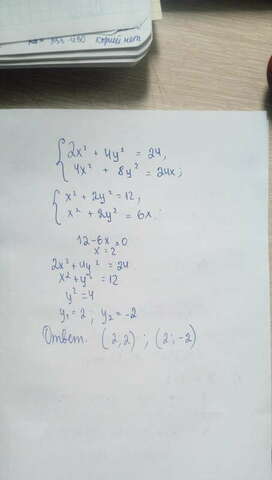 корней нет
{2x² + 4y² = 24,
4x² + 8y² = 24x;
{x² + 2y² = 12,
x² + 2y² = 6x.
12-6x=0
x=2
2x² + 4y² = 24
x² + y² = 12
y² = 4
y₁ = 2; y₂ = -2
Ответ. (2;2) ; (2;-2)